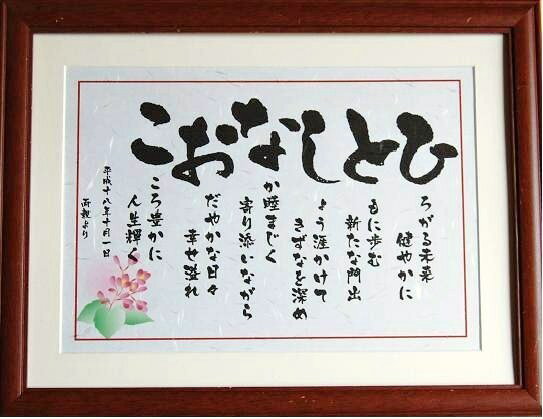 ひとしなおこ
ろがる未来
健やかに
もに歩む
新たな門出
ょう涯かけて
きずなを深め
か睦まじく
寄り添いながら
だやかな日々
幸せ溢れ
ころ豊かに
人生輝く
平成十八年十月一日
両親より